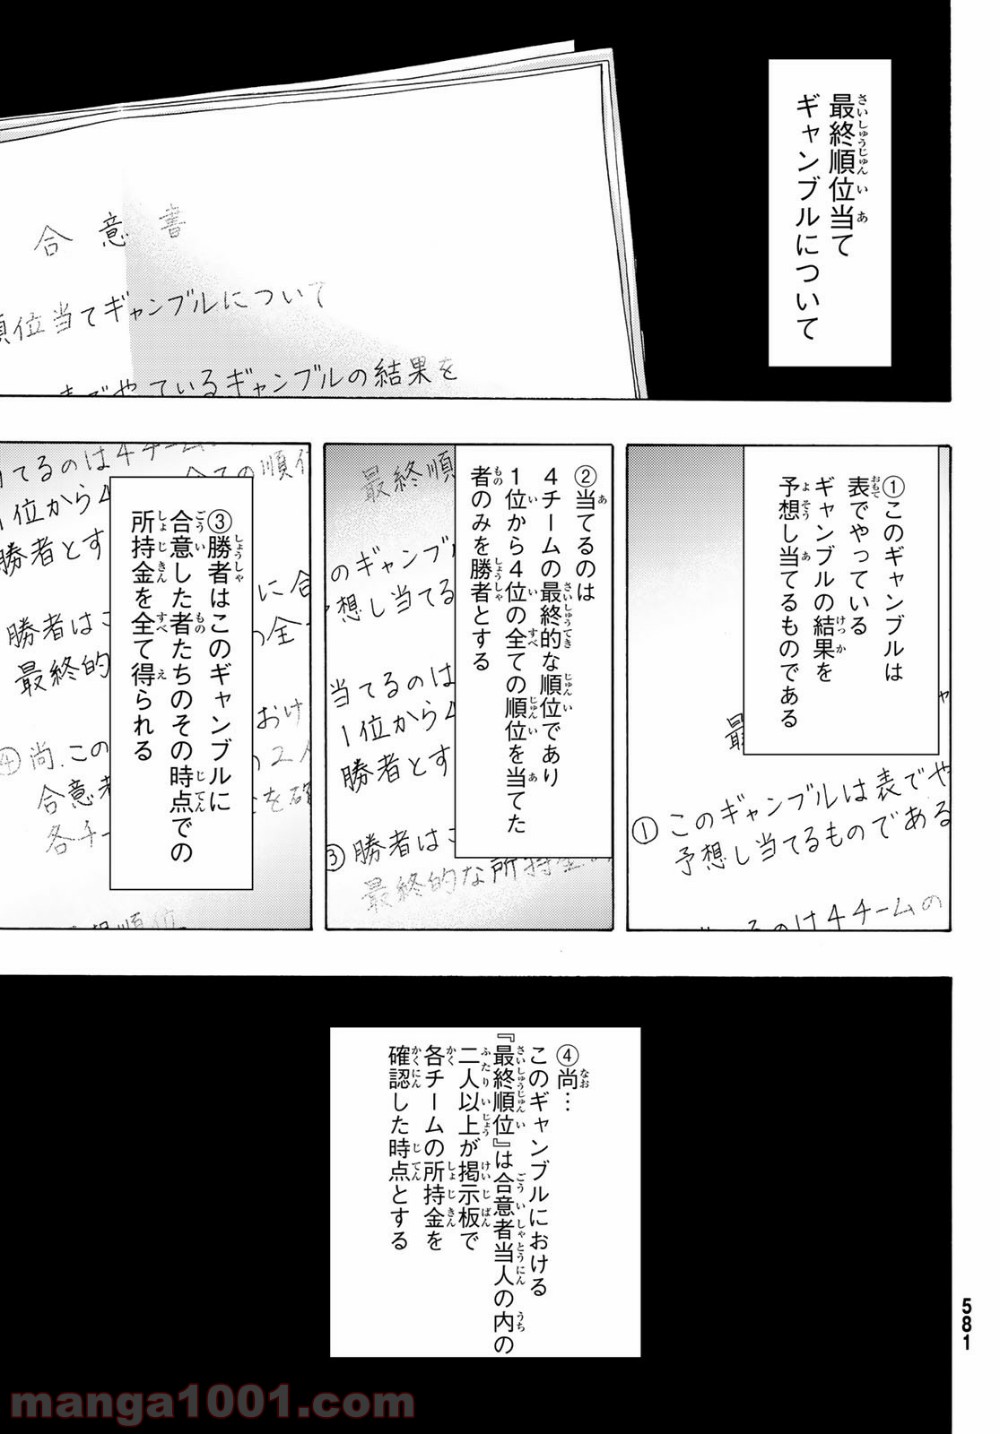 最終順位当て
ギャンブルについて
合意書
順位当てギャンブルについて
表でやっているギャンブルの結果を
①このギャンブルは
表でやっている
ギャンブルの結果を
予想し当てるものである
①このギャンブルは表でや
予想し当てるものである
るのは4チームの
②当てるのは
4チームの最終的な順位であり
1位から4位の全ての順位を当てた
者のみを勝者とする
最終順
のギャンブル
予想し当てる
当てるのは
1位から4
勝者とす
③勝者はこ
最終的な所持金
③勝者はこのギャンブルに
合意した者たちのその時点での
所持金を全て得られる
当てるのは4チーム
全ての順位
1位から4
勝者とす
に合
勝者はこ
の全
最終的
おけ
④尚、この
の2人
合意者
を確
各チー
④尚…
このギャンブルにおける
『最終順位』は合意者当人の内の
二人以上が掲示板で
各チームの所持金を
確認した時点とする
581
manga1001.com